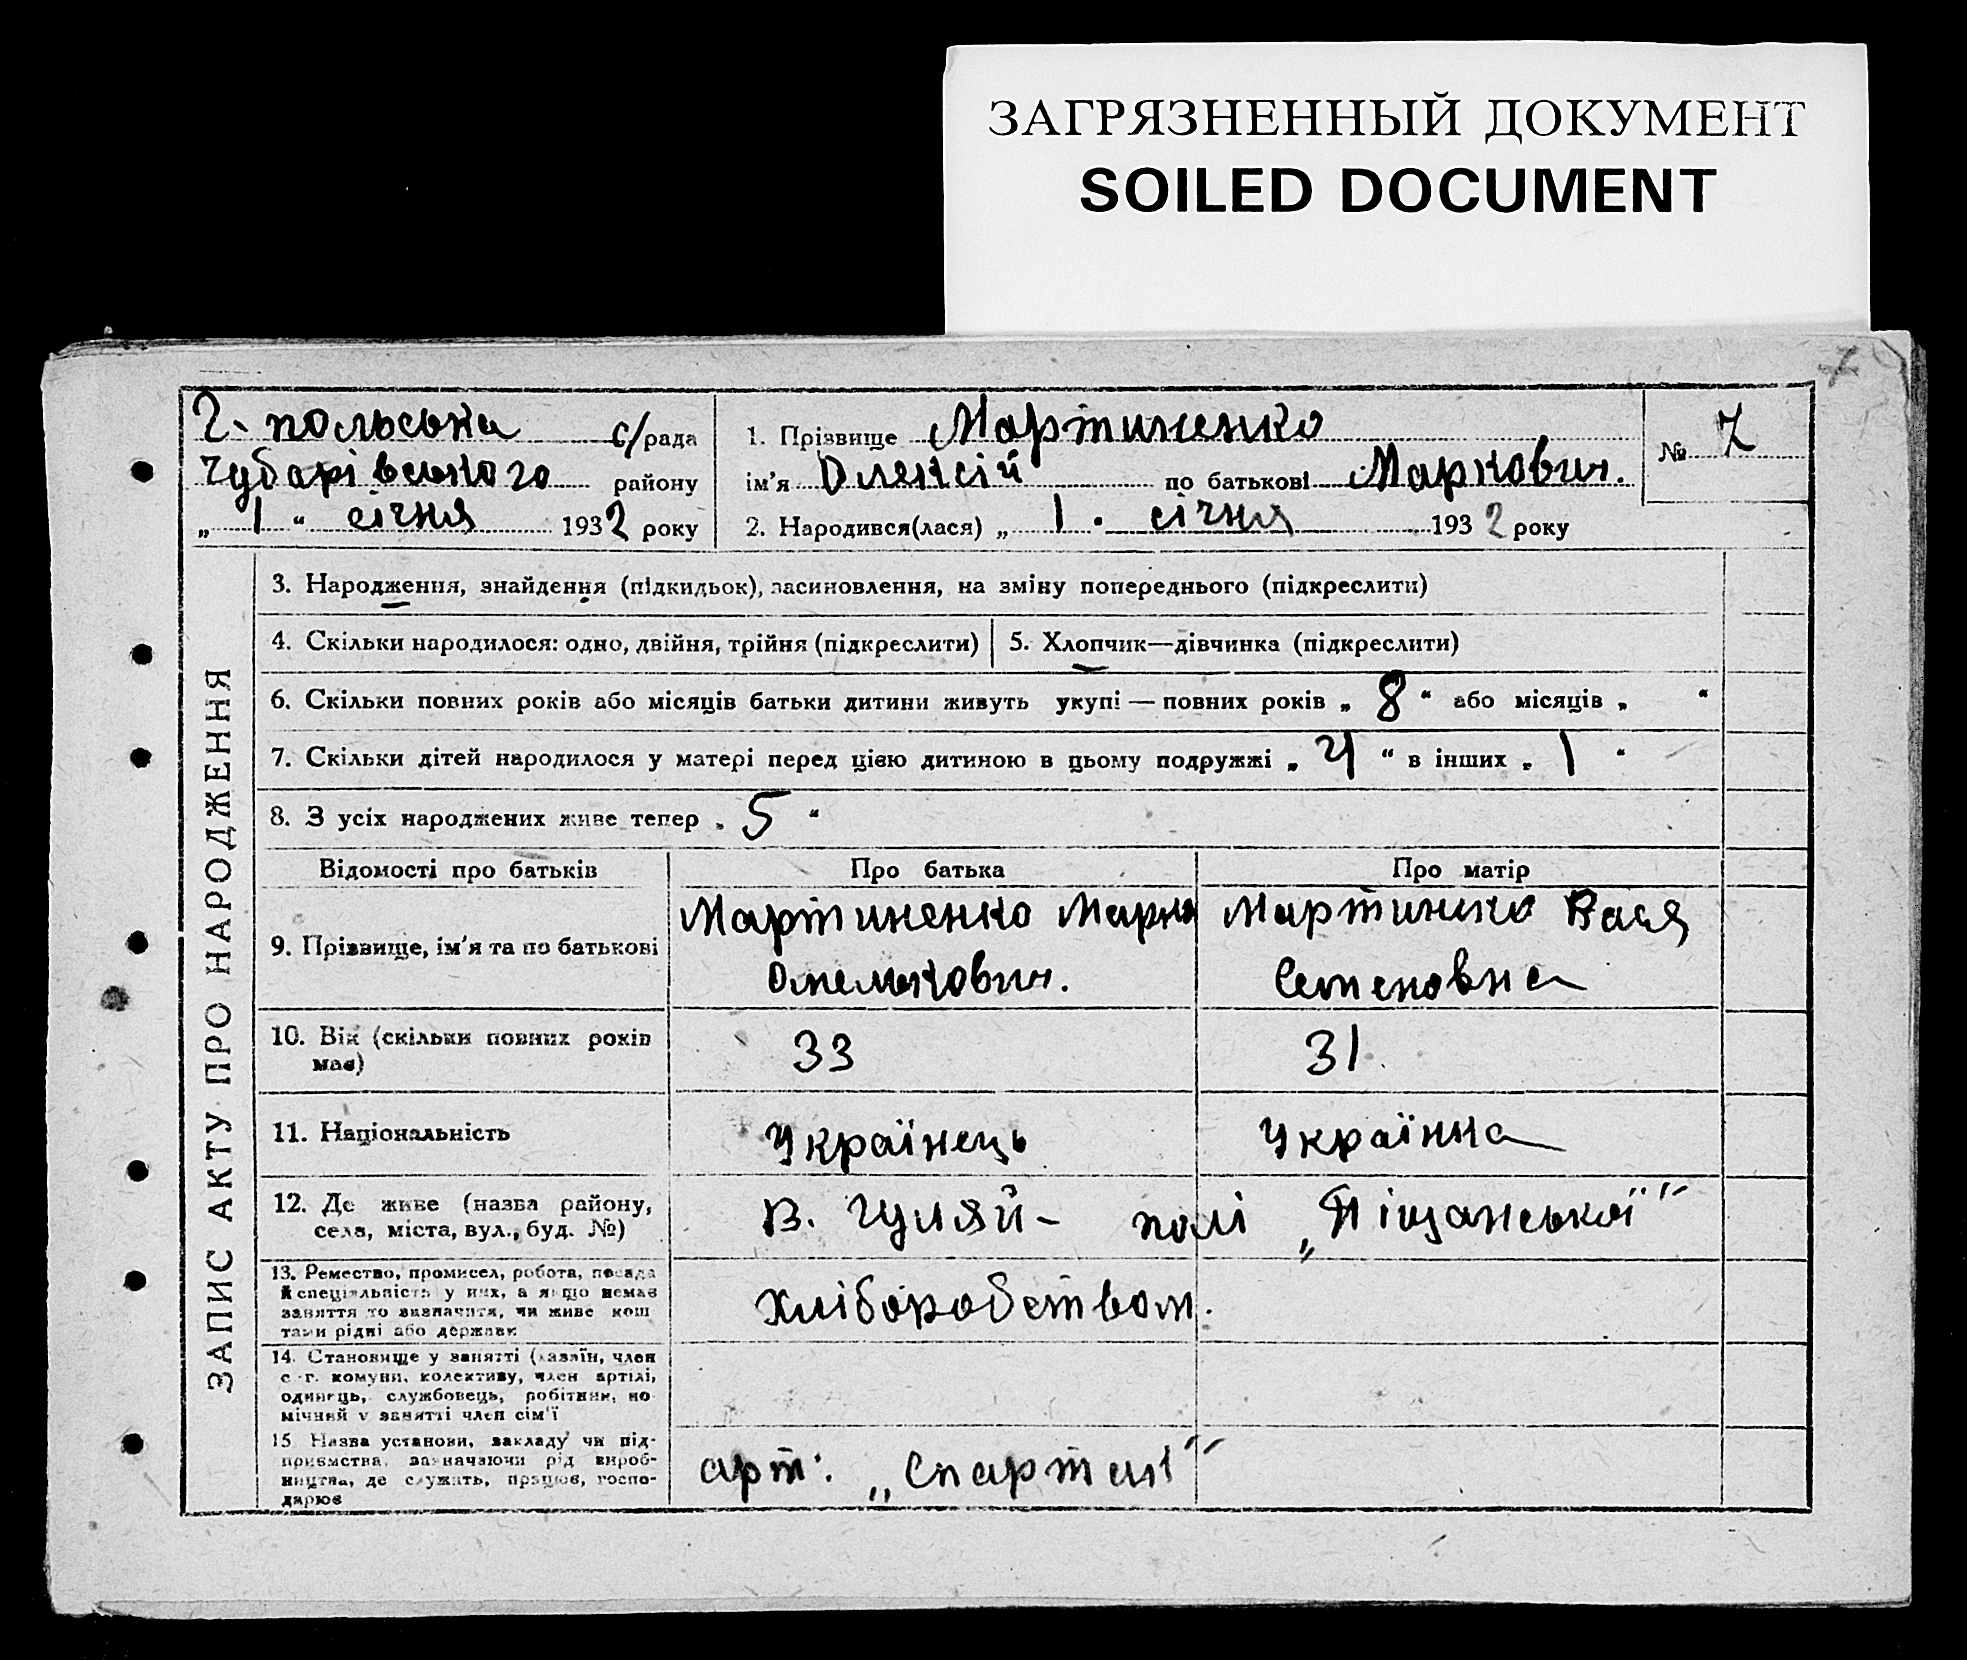 ЗАГРЯЗНЕННЫЙ ДОКУМЕНТ
SOILED DOCUMENT
Г. польська с/рада
Чубарівського району
„ 1 “ січня 1932 року
1. Прізвище Мартиненко
ім'я Олексій по батькові Маркович.
2. Народився(лася) „ 1 . січня 1932 року
№ 7
ЗАПИС АКТУ ПРО НАРОДЖЕННЯ
3. Народження, знайдення (підкидьок), засиновлення, на зміну попереднього (підкреслити)
4. Скільки народилося: одно, двійня, трійня (підкреслити) 5. Хлопчик—дівчинка (підкреслити)
6. Скільки повних років або місяців батьки дитини живуть укупі — повних років „ 8 “ або місяців „ “
7. Скільки дітей народилося у матері перед цією дитиною в цьому подружжі „ 4 “ в інших „ 1 “
8. З усіх народжених живе тепер „ 5 “
Відомості про батьків Про батька Про матір
9. Прізвище, ім'я та по батькові
Мартиненко Марко
Омелькович.
Мартиненко Вася
Семеновна
10. Вік (скільки повних років
має)
33 31.
11. Національність Українець Українка
12. Де живе (назва району,
села, міста, вул., буд. №)
В. Гуляй- полі „Піщанської“
13. Ремество, промисел, робота, посада
й спеціяльність у них, а якщо немає
заняття то визначити, чи живе кош
тами рідні або держави
Хліборобством.
14. Становище у занятті (хазяїн, член
с.-г. комуни, колективу, член артілі,
одинець, службовець, робітник, по
мічний у занятті член сім'ї
15. Назва установи, закладу чи під-
приємства, зазначаючи рід вироб-
ництва, де служить, працює, госпо-
дарює
арт: „Спартак“